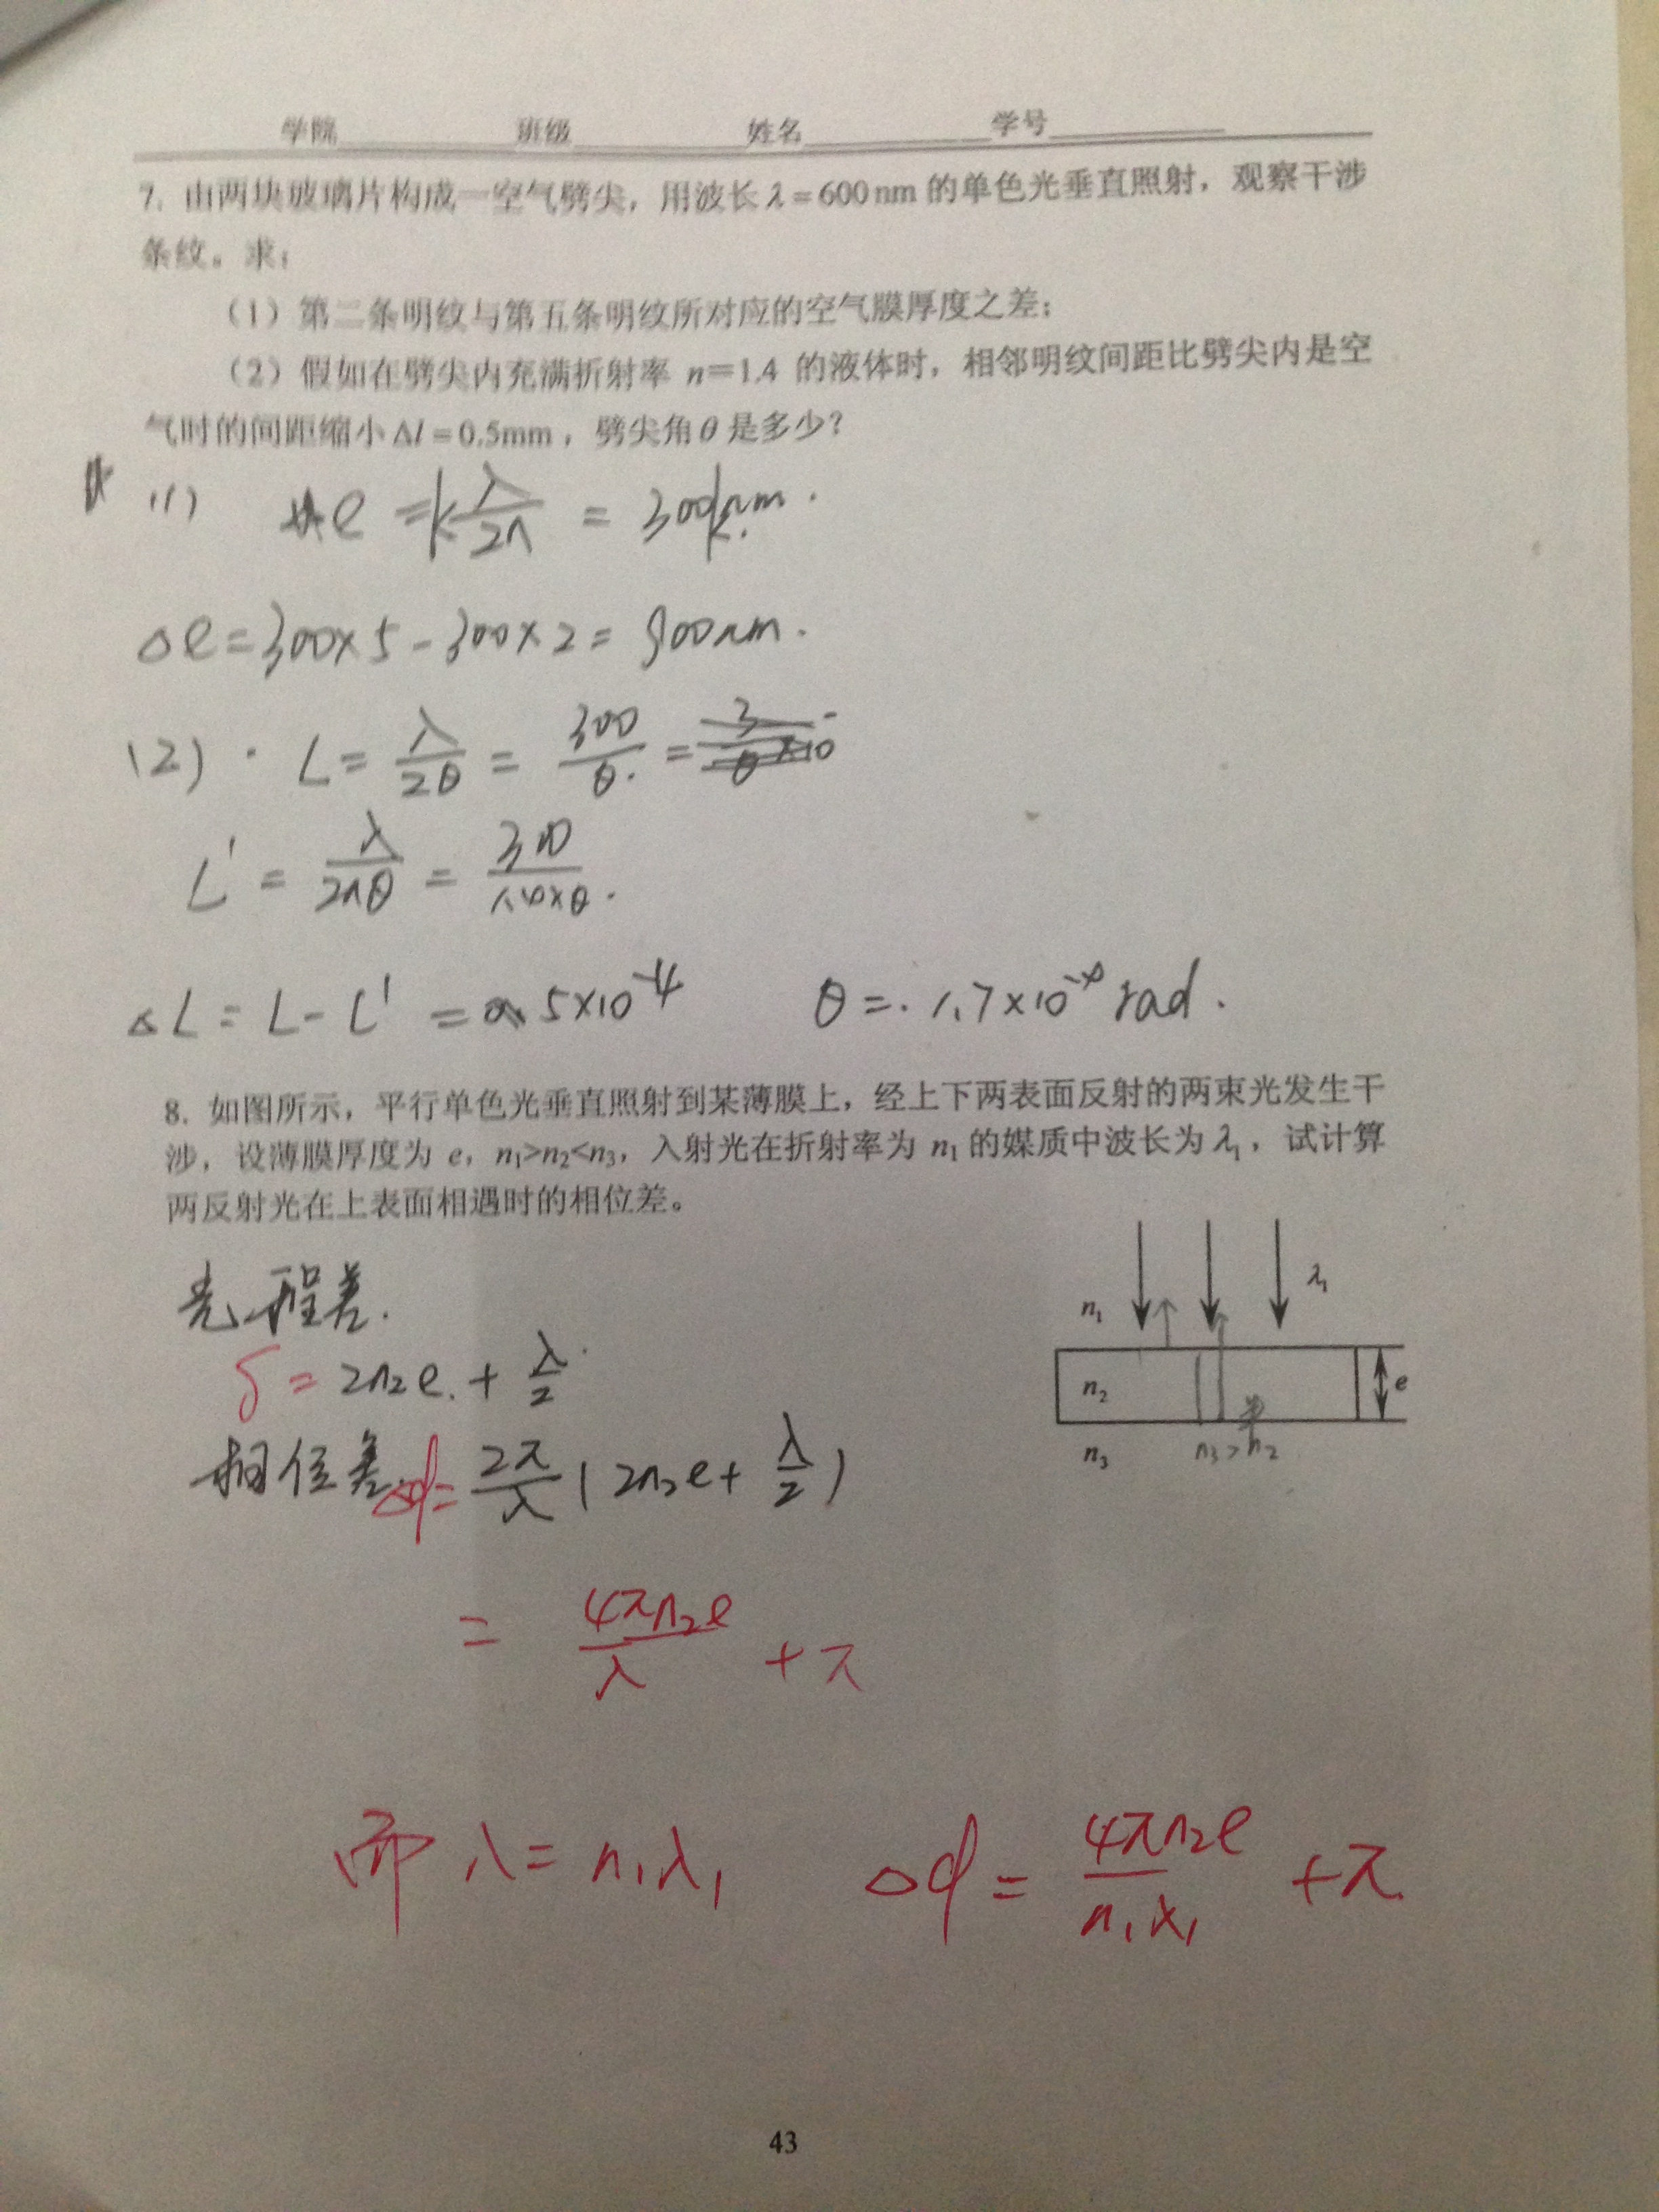 学院 班级 姓名 学号
7. 由两块玻璃片构成一空气劈尖，用波长 λ = 600 nm 的单色光垂直照射，观察干涉
条纹。求：
（1）第二条明纹与第五条明纹所对应的空气膜厚度之差；
（2）假如在劈尖内充满折射率 n=1.4 的液体时，相邻明纹间距比劈尖内是空
气时的间距缩小 Δl = 0.5mm，劈尖角 θ 是多少？
(1) e = k λ/2n = 300k nm.
Δe = 300×5 - 300×2 = 900nm.
(2) · L = λ/2θ = 300/θ. =
L' = λ/2nθ = 300/1.4×θ.
ΔL = L - L' = 5×10⁻⁴ θ = 1.7×10⁻⁴ rad.
8. 如图所示，平行单色光垂直照射到某薄膜上，经上下两表面反射的两束光发生干
涉，设薄膜厚度为 e，n₁>n₂<n₃，入射光在折射率为 n₁ 的媒质中波长为 λ₁，试计算
两反射光在上表面相遇时的相位差。
光程差.
δ = 2n₂e. + λ/2
相位差 Δφ = 2π/λ ( 2n₂e + λ/2 )
= 4πn₂e/λ + π
而 λ = n₁λ₁ Δφ = 4πn₂e/n₁λ₁ + π
n₁ λ₁
n₂ e
n₃ n₃>n₂
43